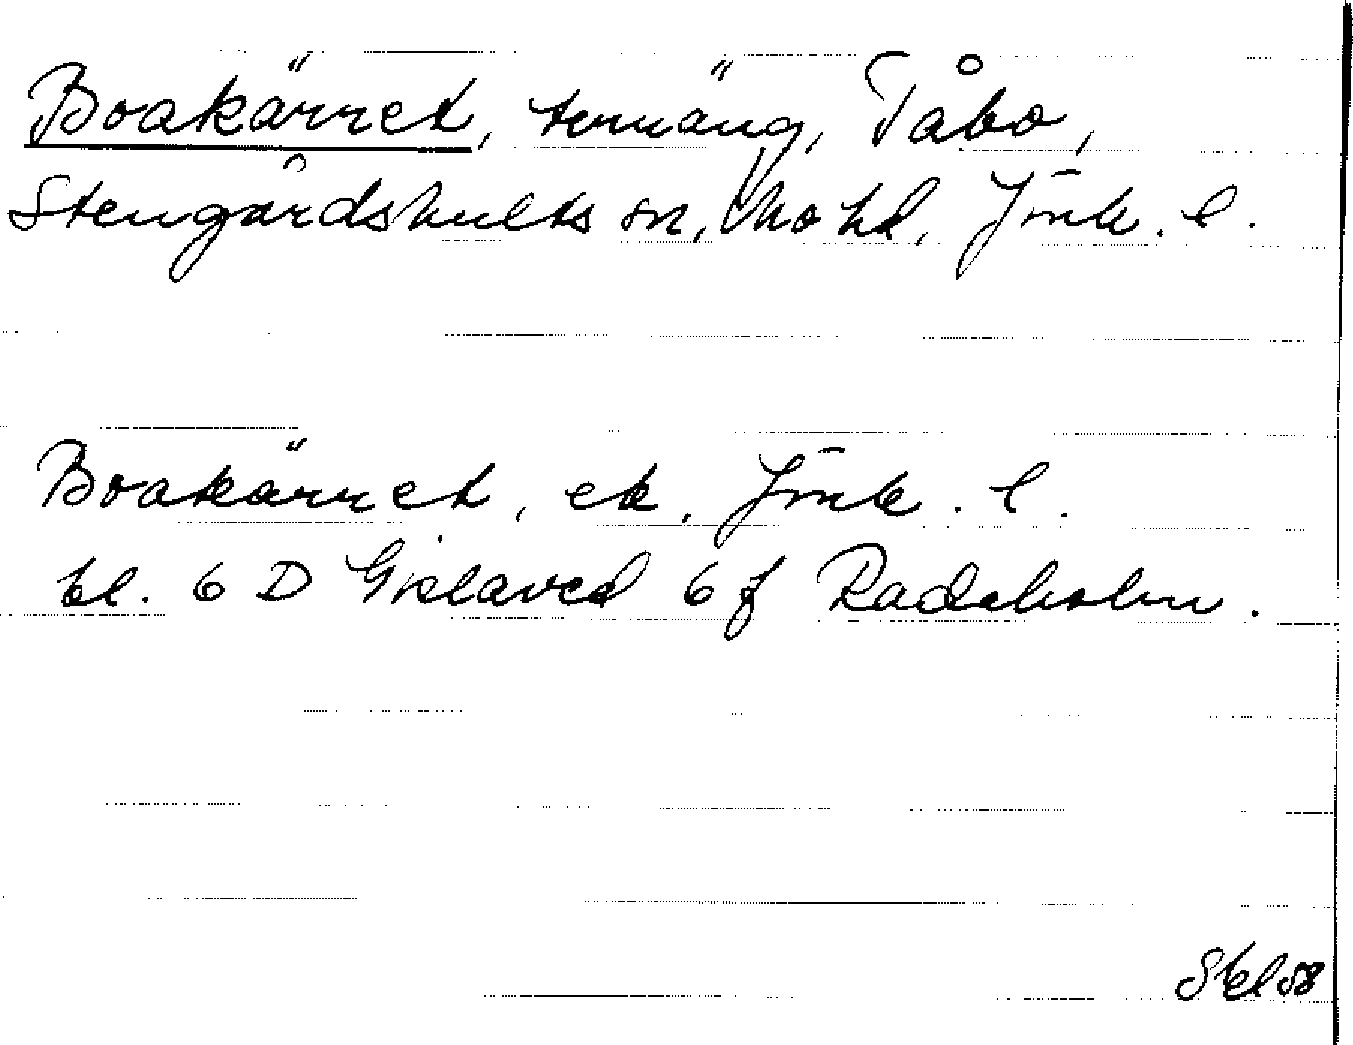 Boakärret, terräng, Tåbo,
Stengårdshults sn, Mo hd, Jönk. l.
Boakärret, ek. Jönk. l.
bl. 6 D Gislaved 6 f Radaholm.
58